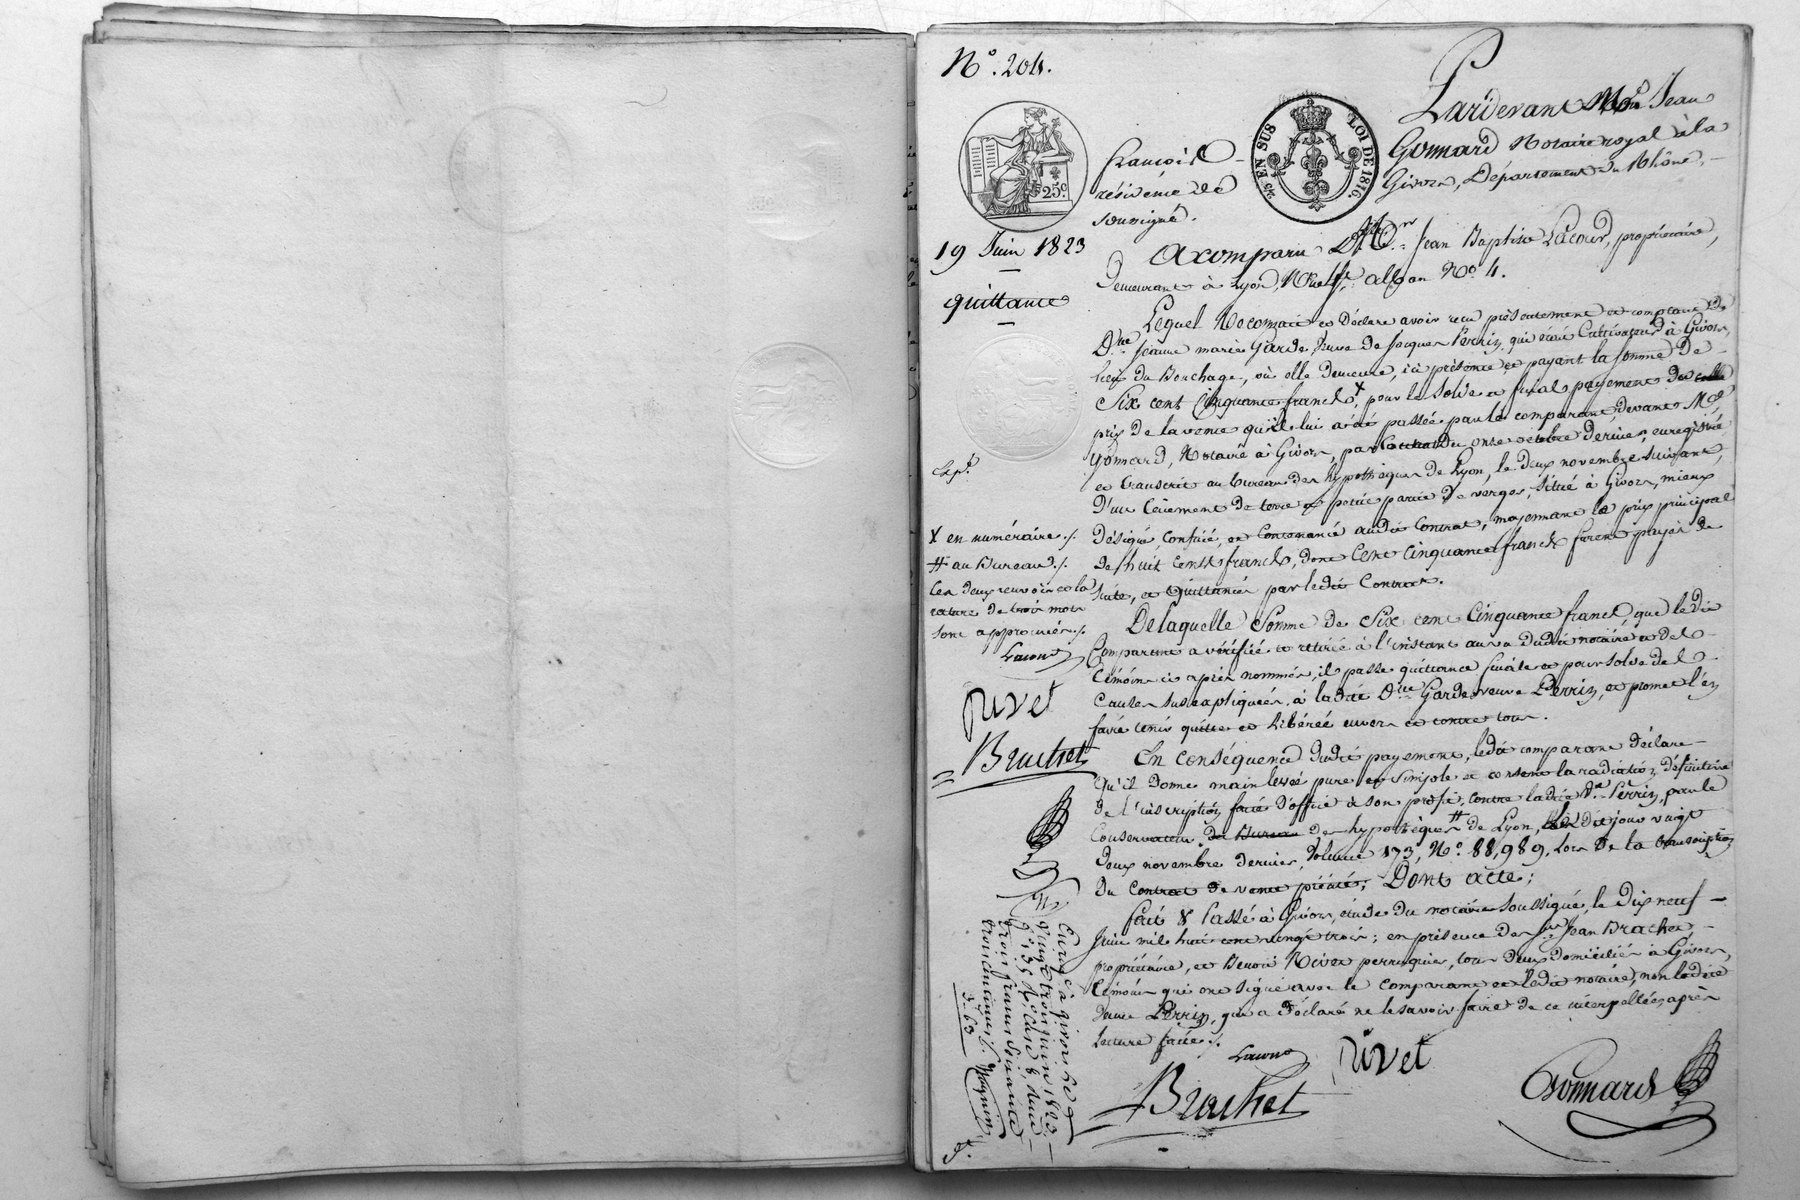 N°. 204.
25c
EN SUS LOI DE 1816.
19 Juin 1823
quittance
Pardevant Me Jean
François Gonnard Notaire royal à la
résidence de Givors, Département du Rhône,
soussigné.
A comparu Sr. Jean Baptiste Lacour, propriétaire,
demeurant à Lyon, No. 4.
Lequel Reconnait et Déclare avoir reçu présentement et comptant de
Dme Jeanne marie Garde veuve de Jacques Perrin, qui était Cultivateur à Givors,
lieu du Bouchage, où elle demeure, ici présente et payant la somme de
Six cent Cinquante francs X, pour le solde et final payement de
prix de la vente qu'il lui a été passée par le comparant devant Me
Gonnard, Notaire à Givors, par le onze octobre dernier, enregistré
et transcrit au bureau des hypothèques de Lyon, le deux novembre suivant,
D'un tènement de terre et petite partie de verger, situé à Givors, mieux
Désigné, confiné, et Contenancé audit Contrat, moyennant le prix principal
de huit Cents francs, dont Cent Cinquante francs furent payés de
suite, et Quittancés par ledit Contrat.
De laquelle Somme de Six cent Cinquante francs, que ledit
Comparant a vérifiée et retirée à l'instant au vu dudit notaire et des
témoins ci après nommés, il passe quittance finale et pour solde des
Causes sus expliquées, à ladite Dme Garde veuve Perrin, et promet l'en
faire tenir quitte et Libérée envers et contre tous.
En conséquence dudit payement, ledit comparant déclare
qu'il Donne main levée pure et Simple et consent la radiation définitive
de l'inscription faite d'office à son profit, contre ladite De Perrin, par le
Conservateur du Bureau des hypothèques # de Lyon, dit jour vingt
deux novembre dernier, Volume 173, No. 88,989, Lors de la transcription
du Contrat de vente précité; Dont acte;
fait & Passé à Givors, étude du notaire soussigné, le Dix neuf
Juin mil huit cent vingt trois; en présence des Srs Jean Brachet
propriétaire, et Benoit Rivet perruquier, tous deux domiciliés à Givors,
témoins qui ont signé avec le comparant et ledit notaire, non ladite
veuve Perrin, qui a Déclaré ne le savoir faire de ce interpellée, après
Lecture faite ./.
Lacour
Rivet
Brachet
Gonnard
Exp.
X en numéraire ./.
# au Bureau ./.
les deux renvois et la
rature de trois mots
sont approuvés ./.
Lacour
Rivet
Brachet
Enreg. à givors le
vingt trois juin 1823
trois francs soixante
trois centimes
3. 63